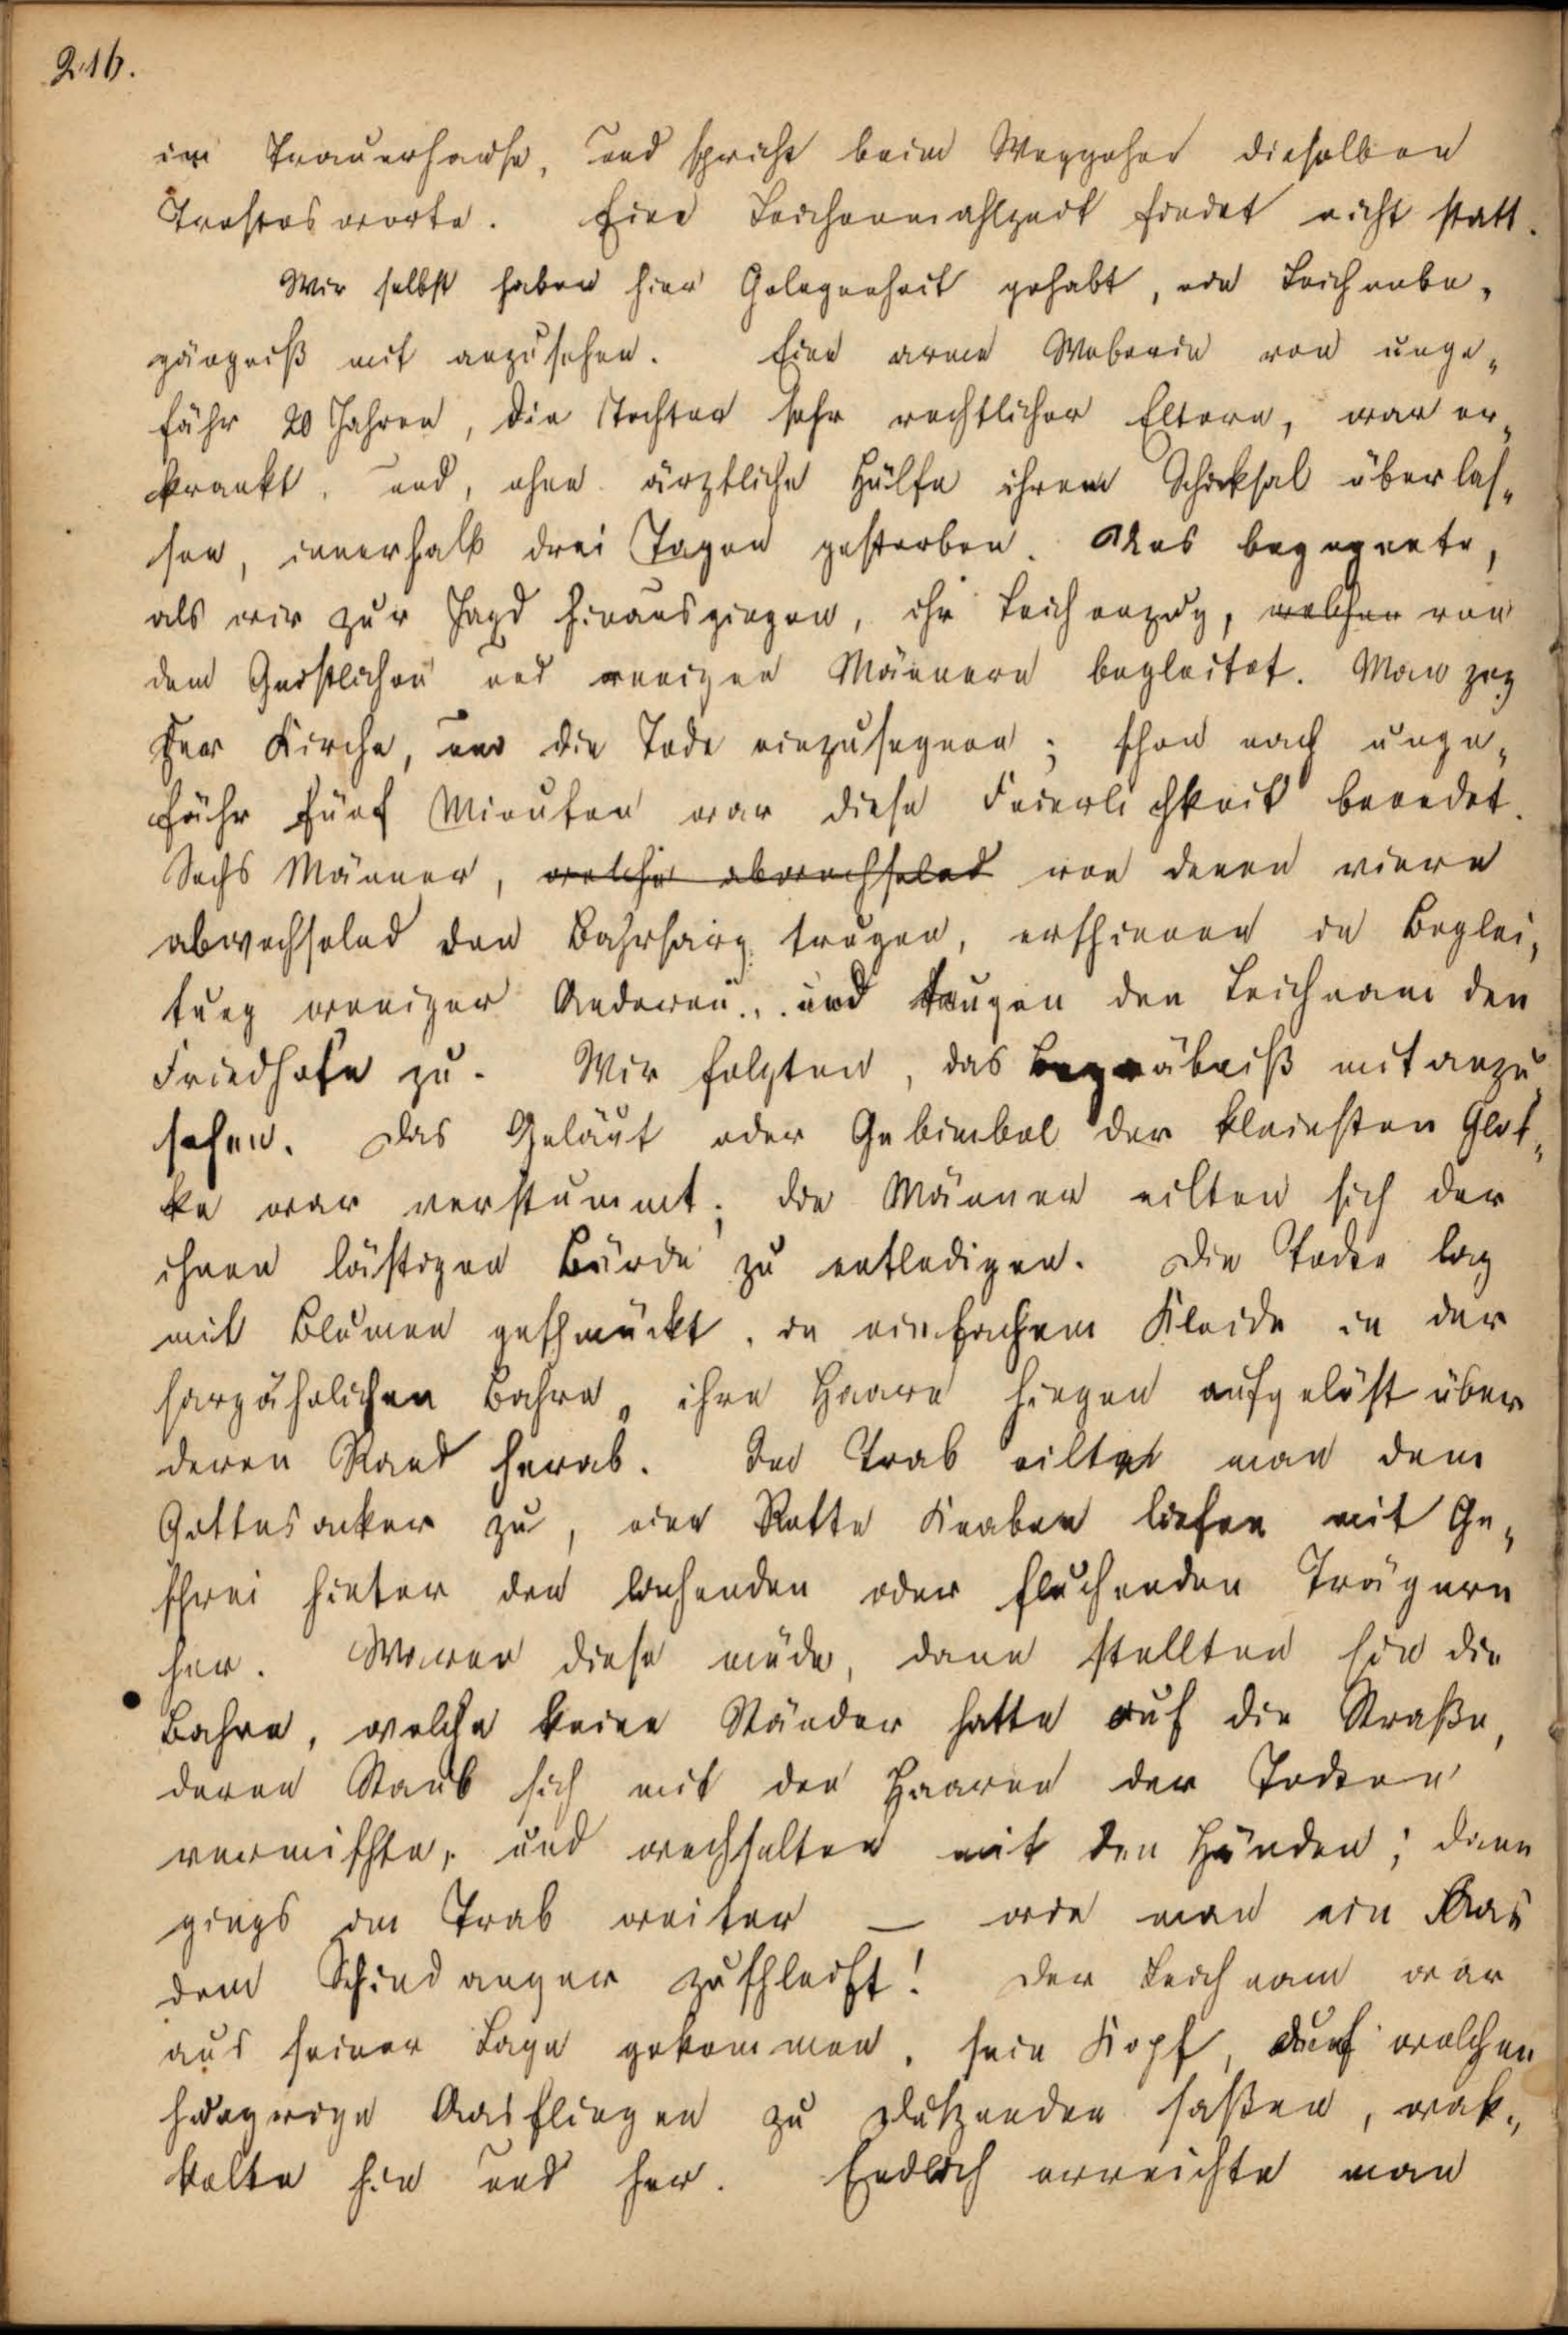 216.
im Trauerhause, und spricht beim Weggehen dieselben
Trostesworte. Eine Leichenmahlzeit findet nicht statt.
Wir selbst haben hier Gelegenheit gehabt, ein Leichenbe„
gängniß mit anzusehen. Eine arme Weberin von unge„
fähr 20 Jahren, die Tochter sehr rechtlicher Eltern, war er„
krankt, und, ohne ärztliche Hülfe ihrem Schicksal überlas„
sen, innerhalb drei Tagen gestorben. Uns begegnete,
als wir zur Jagd hinausgingen, ihr Leichenzug, welcher von
dem Geistlichen und wenigen Männern begleitet. Man zog
der Kirche, um die Tode einzusegnen; schon nach unge„
fähr fünf Minuten war diese Feierlichkeit beendet.
Sechs Männer, welche abwechselnd von denen viere
abwechselnd den Bahrsarg trugen, erschienen in Beglei„
tung weniger Anderen, und trugen den Leichnam dem
Friedhofe zu. Wir folgten, das Begräbniß mit anzu„
sehen. Das Geläut oder Gebimbel der kleinsten Glok„
ke war verstummt; die Männer eilten sich der
ihnen lästigen Bürde zu entledigen. Die Todte lag
mit Blumen geschmückt, in einfachem Kleide in der
sargähnlichen Bahre, ihre Haare hingen aufgelöst über
deren Rand herab. Im Trab eilte man dem
Gottesacker zu, eine Rotte Knaben liefen mit Ge„
schrei hinter den lachenden oder fluchenden Trägern
her. Waren diese müde, dann stellten sie die
Bahre, welche keine Ständer hatte auf die Straße,
deren Staub sich mit den Haaren der Todten
vermischte, und wechselten mit den Händen; dann
gings im Trab weiter — wie man ein Aas
dem Schindanger zuschleift! Der Leichnam war
aus seiner Lage gekommen, sein Kopf, auf welchem
hungrige Aasfliegen zu Dutzenden saßen, wak„
kelte hin und her. Endlich erreichte man